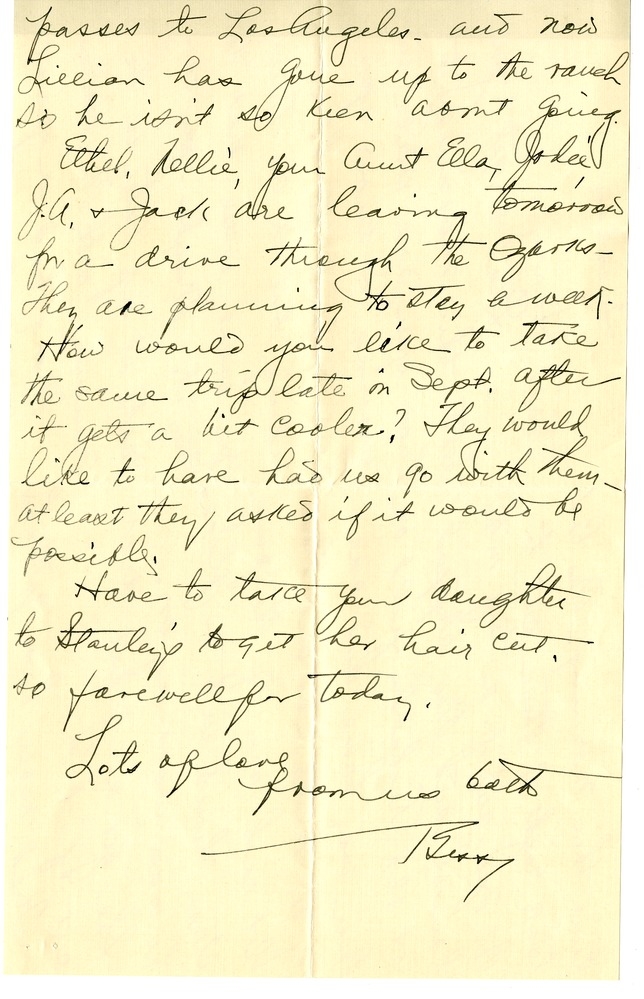 passes to Los Angeles - and now
Lillian has gone up to the ranch
so he isn't so keen about going.
Ethel, Nellie, your Aunt Ella, Jodie
J.A. & Jack are leaving tomorrow
for a drive through the Ozarks -
They are planning to stay a week.
How would you like to take
the same trip late in Sept. after
it gets a bit cooler? They would
like to have had us go with them -
at least they asked if it would be
possible.
Have to take your daughter
to Stanley's to get her hair cut.
so farewell for today.
Lots of love
from us both
Bess